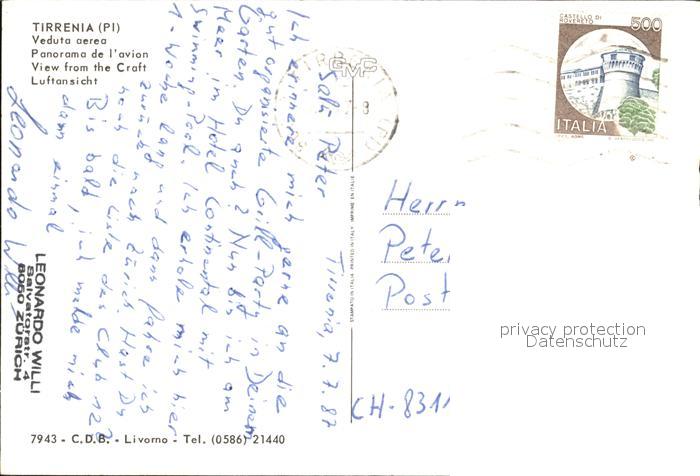 TIRRENIA (PI)
Veduta aerea
Panorama de l'avion
View from the Craft
Luftansicht
GMC
8
CASTELLO DI
ROVERETO
500
ITALIA
Tirrenia, 7.7.87
Salü Peter
Ich erinnere mich gerne an die
gut organisierte Grill-Party in Deinem
Garten. Du auch? Nun bin ich am
Meer im Hotel Continental mit
Swimming-Pool. Ich erhole mich hier
1 Woche lang und dann fahre ich
zurück nach Zürich. Hast Du
noch die Liste des Club 128
Bis bald, ich melde mich
dann einmal
Leonardo Willi
LEONARDO WILLI
Salvatorstr. 4
8050 ZÜRICH
STAMPATO IN ITALIA PRINTED IN ITALY IMPRIME EN ITALIE
Herrn
Pete
Post
CH-8311
privacy protection
Datenschutz
7943 - C.D.B. - Livorno - Tel. (0586) 21440